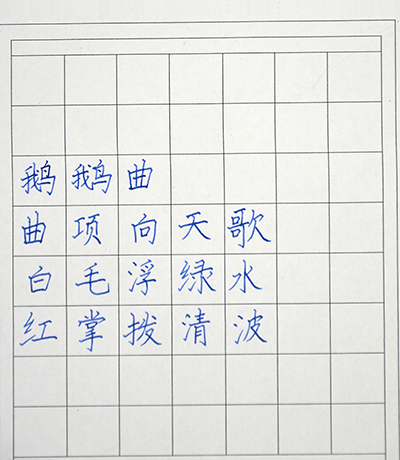 鹅鹅曲
曲项向天歌
白毛浮绿水
红掌拨清波